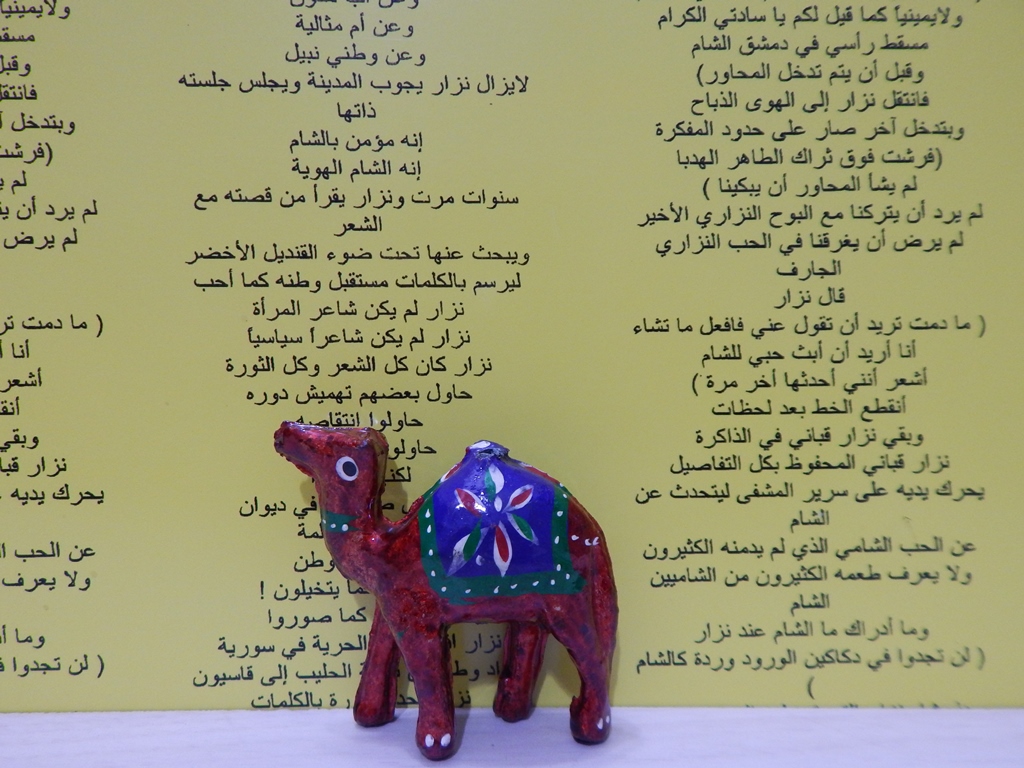 ولايمينياً كما قيل لكم يا سادتي الكرام
مسقط رأسي في دمشق الشام
وقبل أن يتم تدخل المحاور)
فانتقل نزار إلى الهوى الذباح
وبتدخل آخر صار على حدود المفكرة
(فرشت فوق ثراك الطاهر الهدبا
لم يشأ المحاور أن يبكينا )
لم يرد أن يتركنا مع البوح النزاري الأخير
لم يرض أن يغرقنا في الحب النزاري
الجارف
قال نزار
( ما دمت تريد أن تقول عني فافعل ما تشاء
أنا أريد أن أبث حبي للشام
أشعر أنني أحدثها أخر مرة )
أنقطع الخط بعد لحظات
وبقي نزار قباني في الذاكرة
نزار قباني المحفوظ بكل التفاصيل
يحرك يديه على سرير المشفى ليتحدث عن
الشام
عن الحب الشامي الذي لم يدمنه الكثيرون
ولا يعرف طعمه الكثيرون من الشاميين
الشام
وما أدراك ما الشام عند نزار
( لن تجدوا في دكاكين الورود وردة كالشام
)
وعن أم مثالية
وعن وطني نبيل
لايزال نزار يجوب المدينة ويجلس جلسته
ذاتها
إنه مؤمن بالشام
إنه الشام الهوية
سنوات مرت ونزار يقرأ من قصته مع
الشعر
ويبحث عنها تحت ضوء القنديل الأخضر
ليرسم بالكلمات مستقبل وطنه كما أحب
نزار لم يكن شاعر المرأة
نزار لم يكن شاعراً سياسياً
نزار كان كل الشعر وكل الثورة
حاول بعضهم تهميش دوره
حاولوا انتقاصه
حاولوا
في ديوان
وطن
ما يتخيلون !
كما صوروا
نزار الحرية في سورية
الحليب إلى قاسيون
بالكلمات
ولايمينياً
مسقط
وقبل
فانتقل
وبتدخل
(فرشت
لم
لم يرد أن
لم يرض
( ما دمت
أنا
أشعر
وبقي
نزار
يحرك يديه
عن الحب
ولا يعرف
وما
( لن تجدوا